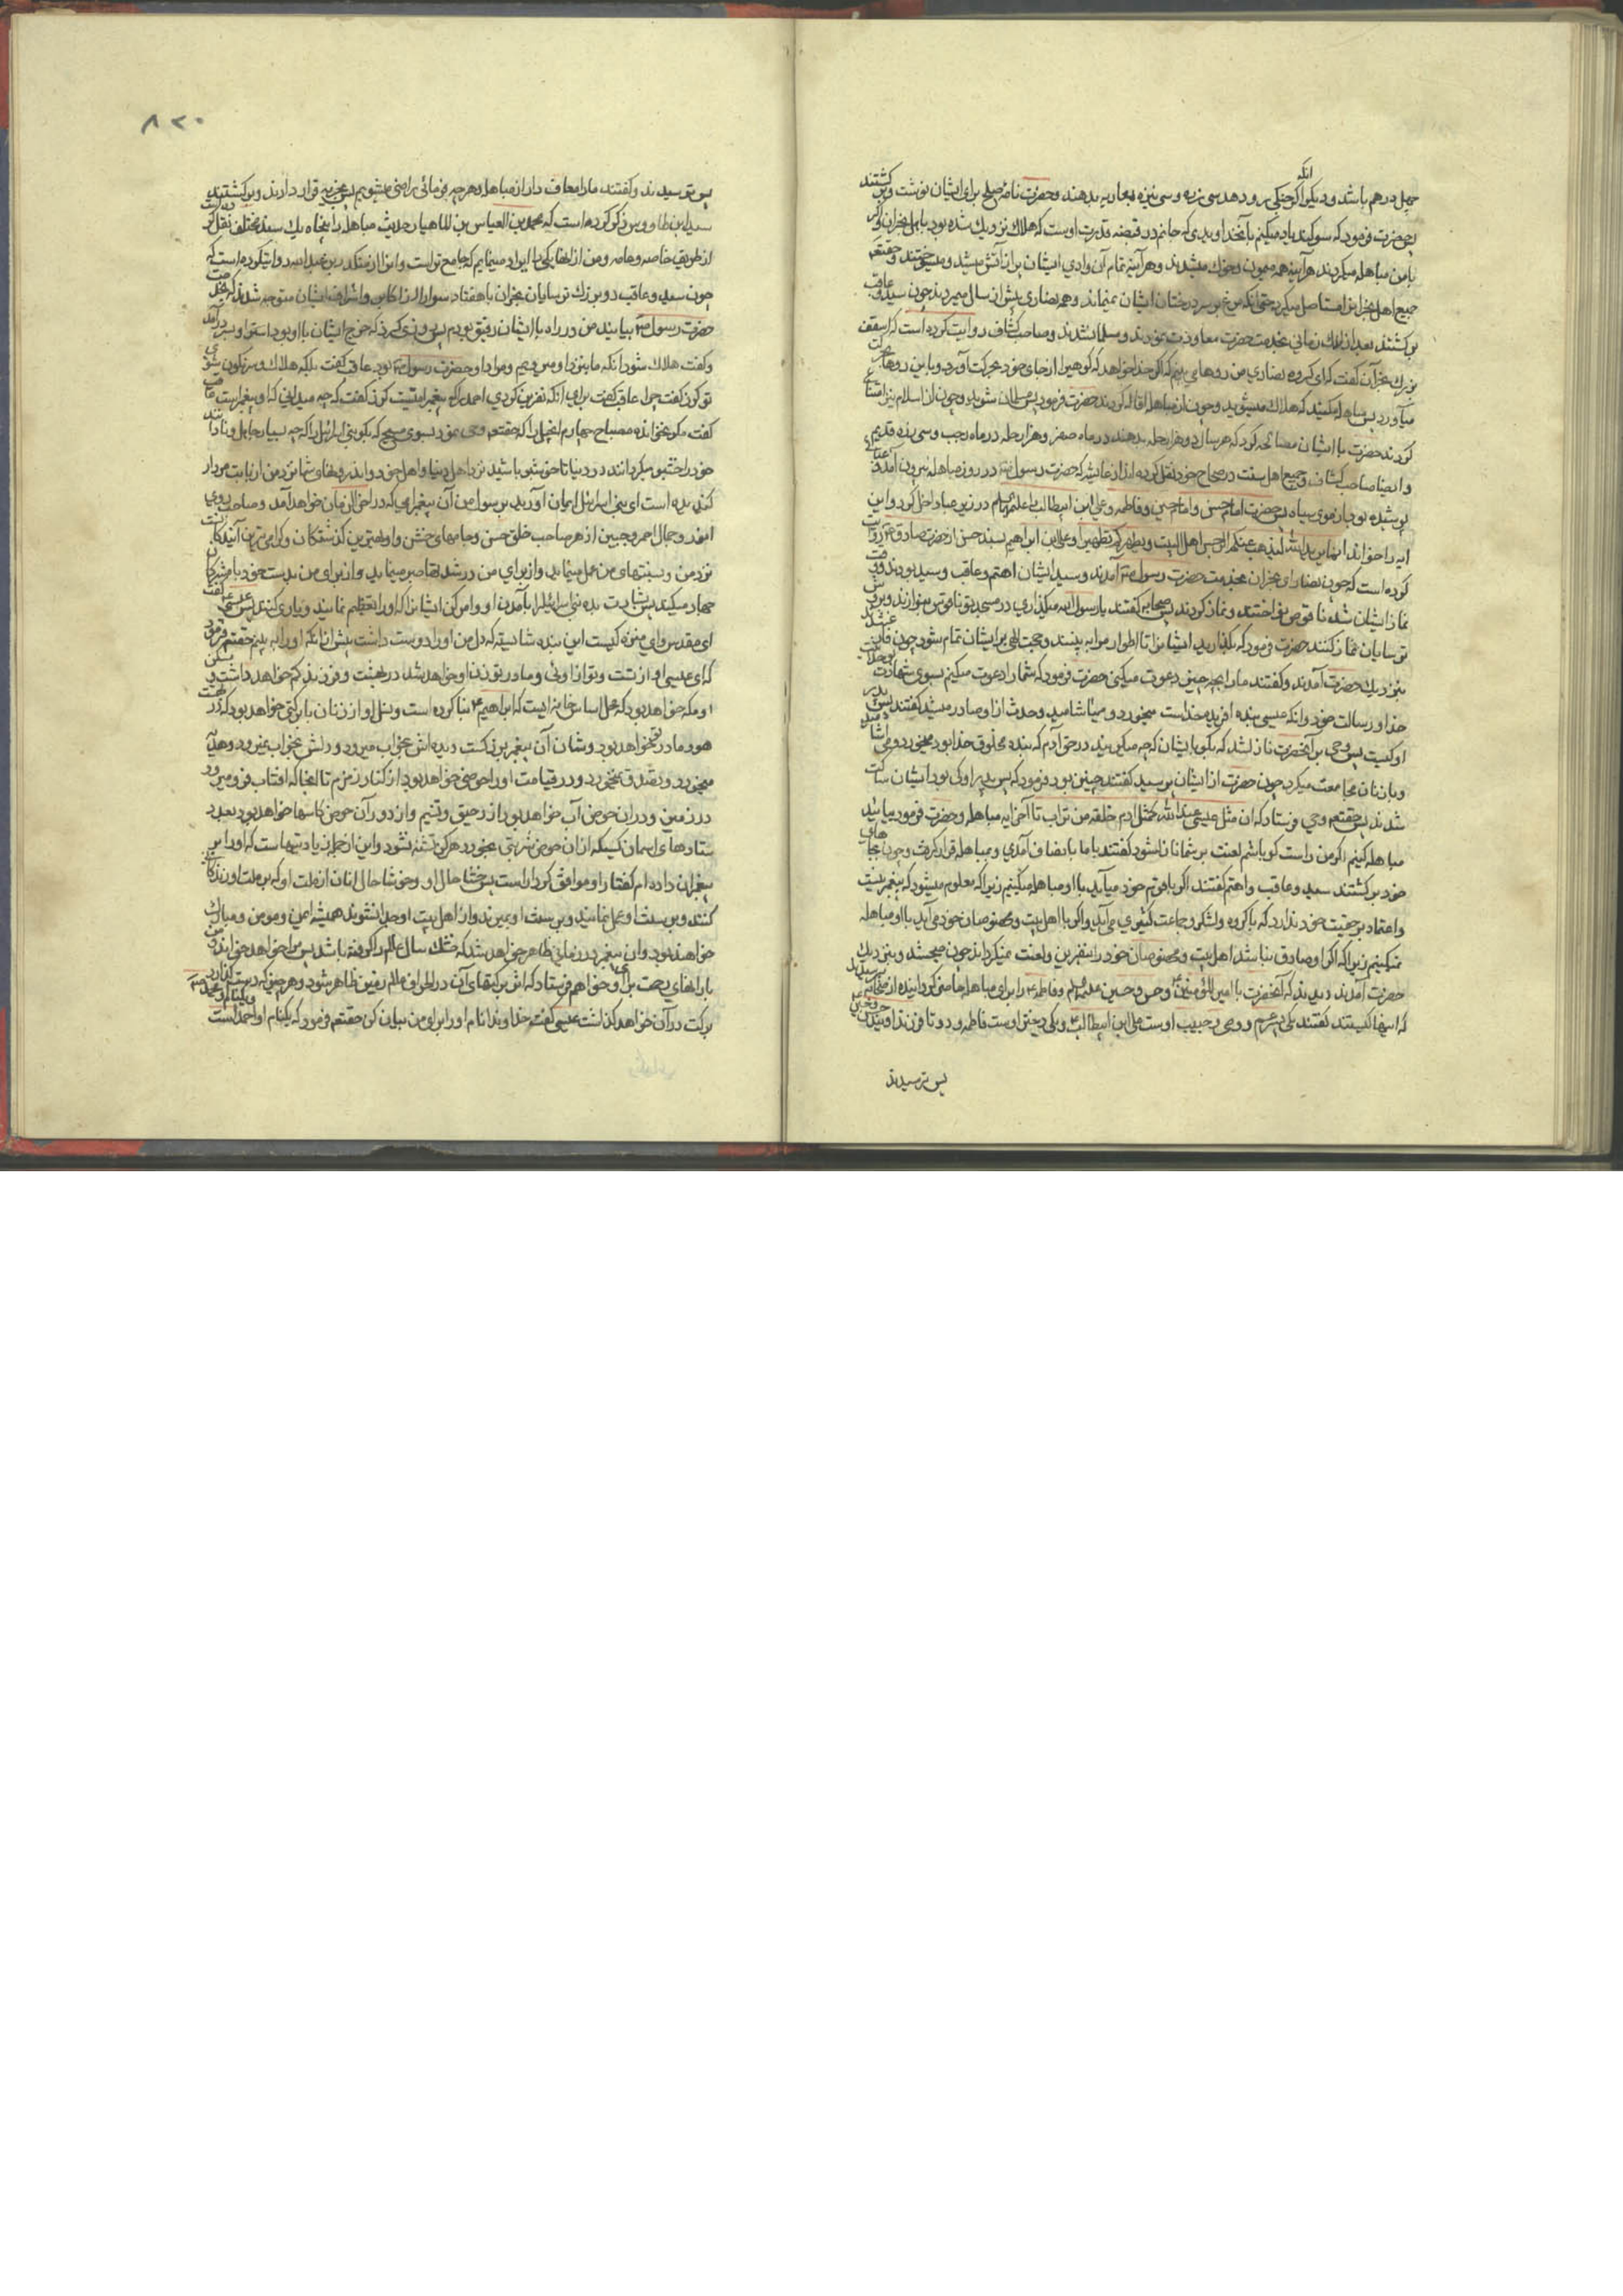 انکه
چهل درهم باشد و دیگر اگر جنگی رو دهد سی زره و سی نیزه بعاریه بدهند و حضرت نامه صلح برای ایشان نوشت و برگشتند
پس حضرت فرمود که سوگند یاد میکنم بآنخداوندی که جانم در قبضه قدرت اوست که هلاک نزدیک شده بود باهل نجران و اگر
با من مباهله میکردند هر آینه همه میمون و خوک میشدند و هر آینه تمام آن وادی ایشان بر از آتش میشد و میسوختند و حقتعم
جمیع اهل نجران را مستاصل میکرد حتی انکه مرغ بر سر درختان ایشان نمیماند و همه نصاری پیش از سال میمردند چون سید و عاقب
برگشتند بعد از اندک زمانی بخدمت حضرت معاودت نمودند و مسلمان شدند و صاحب کشاف روایت کرده است که اسقف
بزرک نجران گفت که ای گروه نصاری من روهای میبینم که اگر خدا خواهد که کوهیرا از جای خود بحرکت آورد باین روها بحرکت
میآورد پس مباهله مکنید که هلاک میشوید و چون از مباهله اقاله کردند حضرت فرمود پس مسلمان شوید و چون از اسلام نیز امتناع
کردند حضرت با ایشان مصالحه کرد که هر سال دو هزار حله بدهند در ماه صفر و هزار حله در ماه رجب و سی زره قدیم
و ایضا صاحب کشاف و جمیع اهل سنت در صحاح خود نقل کرده اند از عایشه که حضرت رسول ص در روز مباهله بیرون آمد و عبائی
پوشیده بود از موی سیاه پس حضرت امام حسن و امام حسین و فاطمه و علی ابن ابیطالب علیهم السلم در زیر عبا داخل کرد و این
ایه را خواند انما یرید الله لیذهب عنکم الرجس اهل البیت و یطهرکم تطهیرا و علی ابن ابراهیم بسند حسن از حضرت صادق ع روایت
کرده است که چون نصارای نجران بخدمت حضرت رسول ص آمدند و سید ایشان اهتم و عاقب و سید بودند وقت
نماز ایشان شد ناقوس نواختند و نماز کردند پس صحابه گفتند یا رسول الله میگذاری در مسجد تو ناقوس بنوازند و بروش
ترسایان نماز کنند حضرت فرمود که بگذارید ایشانرا تا اطوار مرا به بینند و حجت الهی بر ایشان تمام شود چون فارغ شدند
بنزدیک حضرت آمدند و گفتند ما را بچه چیز دعوت میکنی حضرت فرمود که شما را دعوت میکنم بسوی شهادت بوحدانیت
خدا و رسالت خود و انکه عیسی بنده آفریده خداست میخورد و میآشامید و حدث از او صادر میشد گفتند پس پدر
او کیست پس وحی بر آنحضرت نازل شد که بگو بایشان که چه میگویند در حق آدم که بنده مخلوق خدا بود میخورد و می آشامید
و با زنان مجامعت میکرد چون حضرت از ایشان پرسید گفتند چنین بود فرمود که پس پدر او کی بود ایشان ساکت
شدند پس حقتعم وحی فرستاد که ان مثل عیسی عند الله کمثل ادم خلقه من تراب تا آخر ایه مباهله و حضرت فرمود بیائید
مباهله کنیم اگر من راست گو باشم لعنت بر شما نازل شود گفتند با ما بانصاف آمدی و بمباهله قرار گرفت و چون بجاهای
خود برگشتند سید و عاقب و اهتم گفتند اگر با قوم خود میآید با او مباهله میکنیم زیرا که معلوم میشود که پیغمبر نیست
و اعتماد بر حقیت خود ندارد که با گروه و لشکر و جماعت کثیری می آید و اگر با اهل بیت و مخصوصان خود می آید با او مباهله
نمیکنیم زیرا که اگر او صادق نباشد اهل بیت و مخصوصان خود را بنفرین و لعنت نمیگرداند چون صبح شد و بنزدیک
حضرت آمدند دیدند که آنحضرت با امیر المؤمنین ع و حسن و حسین علیهم السلم و فاطمه ع را برای مباهله حاضر گردانیده از صحابه پرسیدند
که اینها کیستند گفتند یکی پسر عم و وصی و حبیب اوست علی ابن ابیطالب ع و یکی دختر اوست فاطمه و دو تا فرزند اویند حسن و حسین
پس ترسیدند
۸۲۰
پس ترسیدند و گفتند ما را معاف دار از مباهله و هر چه فرمائی راضی میشویم پس بجزیه قرار دادند و برگشتند
سید ابن طاووس ذکر کرده است که محمد بن العباس بن الماهیار حدیث مباهله را به پنجاه و یک سند مختلف نقل کرده است
از طریق خاصه و عامه و من از انها یکی را ایراد مینمایم که جامع تر است و انرا از منکدر بن عبد الله روایت کرده است که
چون سید و عاقب دو بزرک ترسایان نجران با هفتاد سوار از اکابر و اشراف ایشان متوجه شدند که بخدمت
حضرت رسول ص بیایند من در راه با ایشان رفیق بودم پس روزی کرز که خرج ایشان با او بود استر او بسر در آمد
و گفت هلاک شود انکه ما بنزد او میرویم و مراد او حضرت رسول ص بود عاقب گفت بلکه هلاک و سرنگون شوی
تو کرز گفت چرا عاقب گفت برای انکه نفرین کردی احمد را که پیغمبر امیست کرز گفت که چه میدانی که او پیغمبر است عاقب
گفت مگر نخوانده مصباح چهارم انجیل را که حقتعم وحی نمود بسوی مسیح که بگو بنی اسرائیل را که چه بسیار جاهل و نادانند
خود را خشبو میکردانند در دنیا تا خوشبو باشید نزد اهل دنیا و اهل خود و اندرونهای شما نزد من از بابت مردار
گندیده است ای بنی اسرائیل ایمان آورید برسول من آن پیغمبر امی که در آخر الزمان خواهد آمد و صاحب روی
انور و جمال احمر و جبین ازهر صاحب خلق حسن و جامهای خشن و او بهترین گذشتگان و گرامی ترین آیندگانست
نزد من و بسنتهای من عمل مینماید و از برای من در شدتها صبر مینماید و از برای من بدست خود با مشرکان
جهاد میکند پس بشارت ده بنی اسرائیل را بآمدن او و امر کن ایشانرا که او را تعظیم نمایند و یاری کنند پس عیسی گفت
ای مقدس و ای منزه کیست این بنده شایسته که دل من او را دوست داشت پیش از انکه او را به بینم حقتعم فرمود
که ای عیسی او از تست و تو از اوئی و مادر تو زن او خواهد شد در بهشت و فرزند کم خواهد داشت و مسکن
او مکه خواهد بود که محل اساس خانه ایست که ابراهیم ع بنا کرده است و نسل او از زن با برکتی خواهد بود که در بهشت
هوو مادر تو خواهد بود و شان آن پیغمبر بزرگست دیده اش بخواب میرود و دلش بخواب نمیرود و هدیه
میخورد و تصدق نمیخورد و در قیامت او را حوضی خواهد بود از کنار زمزم تا انجا که آفتاب فرو میرود
در زمین و در ان حوض آب خواهد بود از رحیق و تسنیم و از دور آن حوض کاسها خواهد بود بعدد
ستارهای آسمان کسیکه از ان حوض شربتی بخورد هرگز تشنه نشود و این از جمله زیادتیهاست که او را بر
پیغمبران داده ام گفتار او موافق کردار است پس خوشا حال او و خوشا حال انان از ملت او که بر ملت او زندگانی
کنند و بر سنت او عمل نمایند و بر سنت او بمیرند و از اهل بیت او جدا نشوند همیشه ایمن و مومن و مبارک
خواهند بود و ان پیغمبر در زمانی ظاهر خواهد شد که خشک سال عالم را گرفته باشد پس مرا خواهد خواند و من
بارانهای رحمت برای او خواهم فرستاد که اثر برکتهای آن در اطراف عالم زمین ظاهر شود و هر چیز که دست بگذارد
برکت در آن خواهد گذاشت عیسی گفت خداوندا نام او را برای من بیان کن حقتعم فرمود که یکنام او احمد است